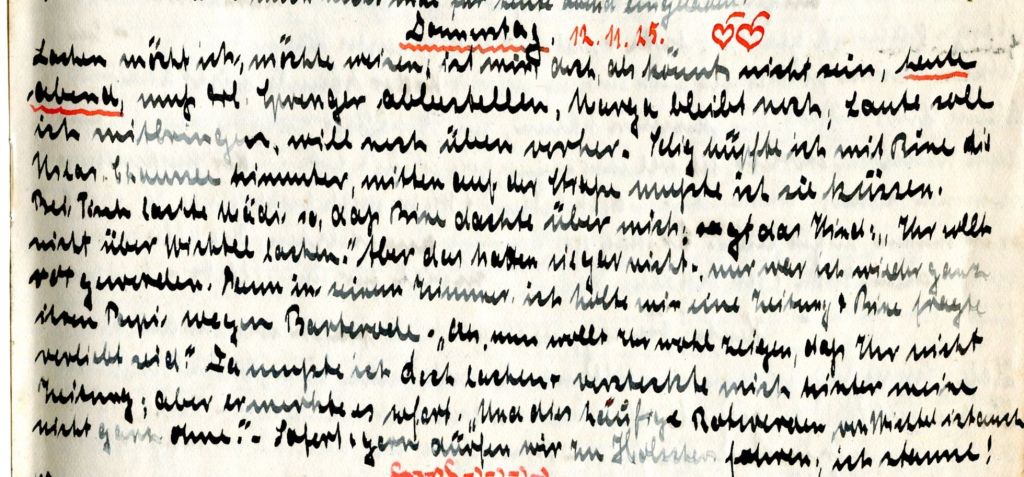 Donnerstag. 12.11.25.
Lachen möcht ich, möchte weinen, ist mir's doch, als könnt's nicht sein, heute
abend, muß Frl. Sprenger abbestellen, Marga bleibt noch, Laute soll
ich mitbringen, will noch üben vorher. Selig hüpfte ich mit Bine die
Chaussee hinunter, mitten auf der Straße mußte ich sie küssen.
Bei Tisch lachte Mädi so, daß Bine dachte über mich, sagt das Kind: "Ihr sollt
nicht über Wichtel lachen." Aber das hatten sie gar nicht, nur war ich wieder ganz
rot geworden. Dann in seinem Zimmer, ich holte mir eine Zeitung + Bine fragte
ihren Papi wegen Barterode. "Ach, nun wollt Ihr wohl zeigen, daß Ihr nicht
verliebt seid?" Da mußte ich doch lachen + versteckte mich hinter meine
Zeitung; aber er merkte es sofort. "Und das häufige Rotwerden von Wichtel ist auch
nicht ganz ohne." - Sofort + gern dürfen wir zu fahren, ich staune!